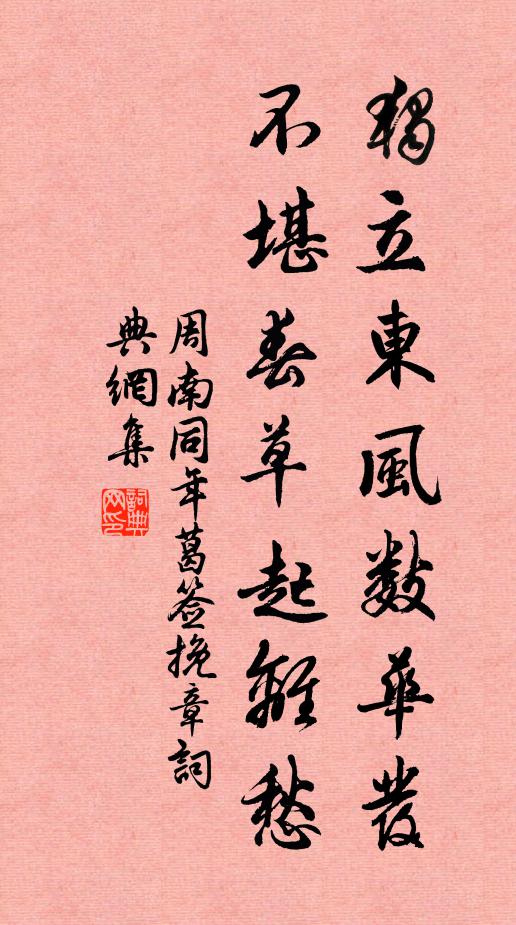 獨立東風数華發
不堪春草起離愁
周南同年葛签挽章詞
典網集
詞典
网印